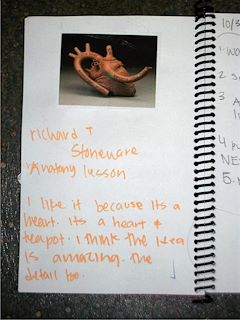 richard T
Stoneware
"Anatomy lesson
I like it because its a
heart. Its a heart &
teapot. I think the Idea
is amazing. the
detail too.
10/3
1.
2.
3
4
5.